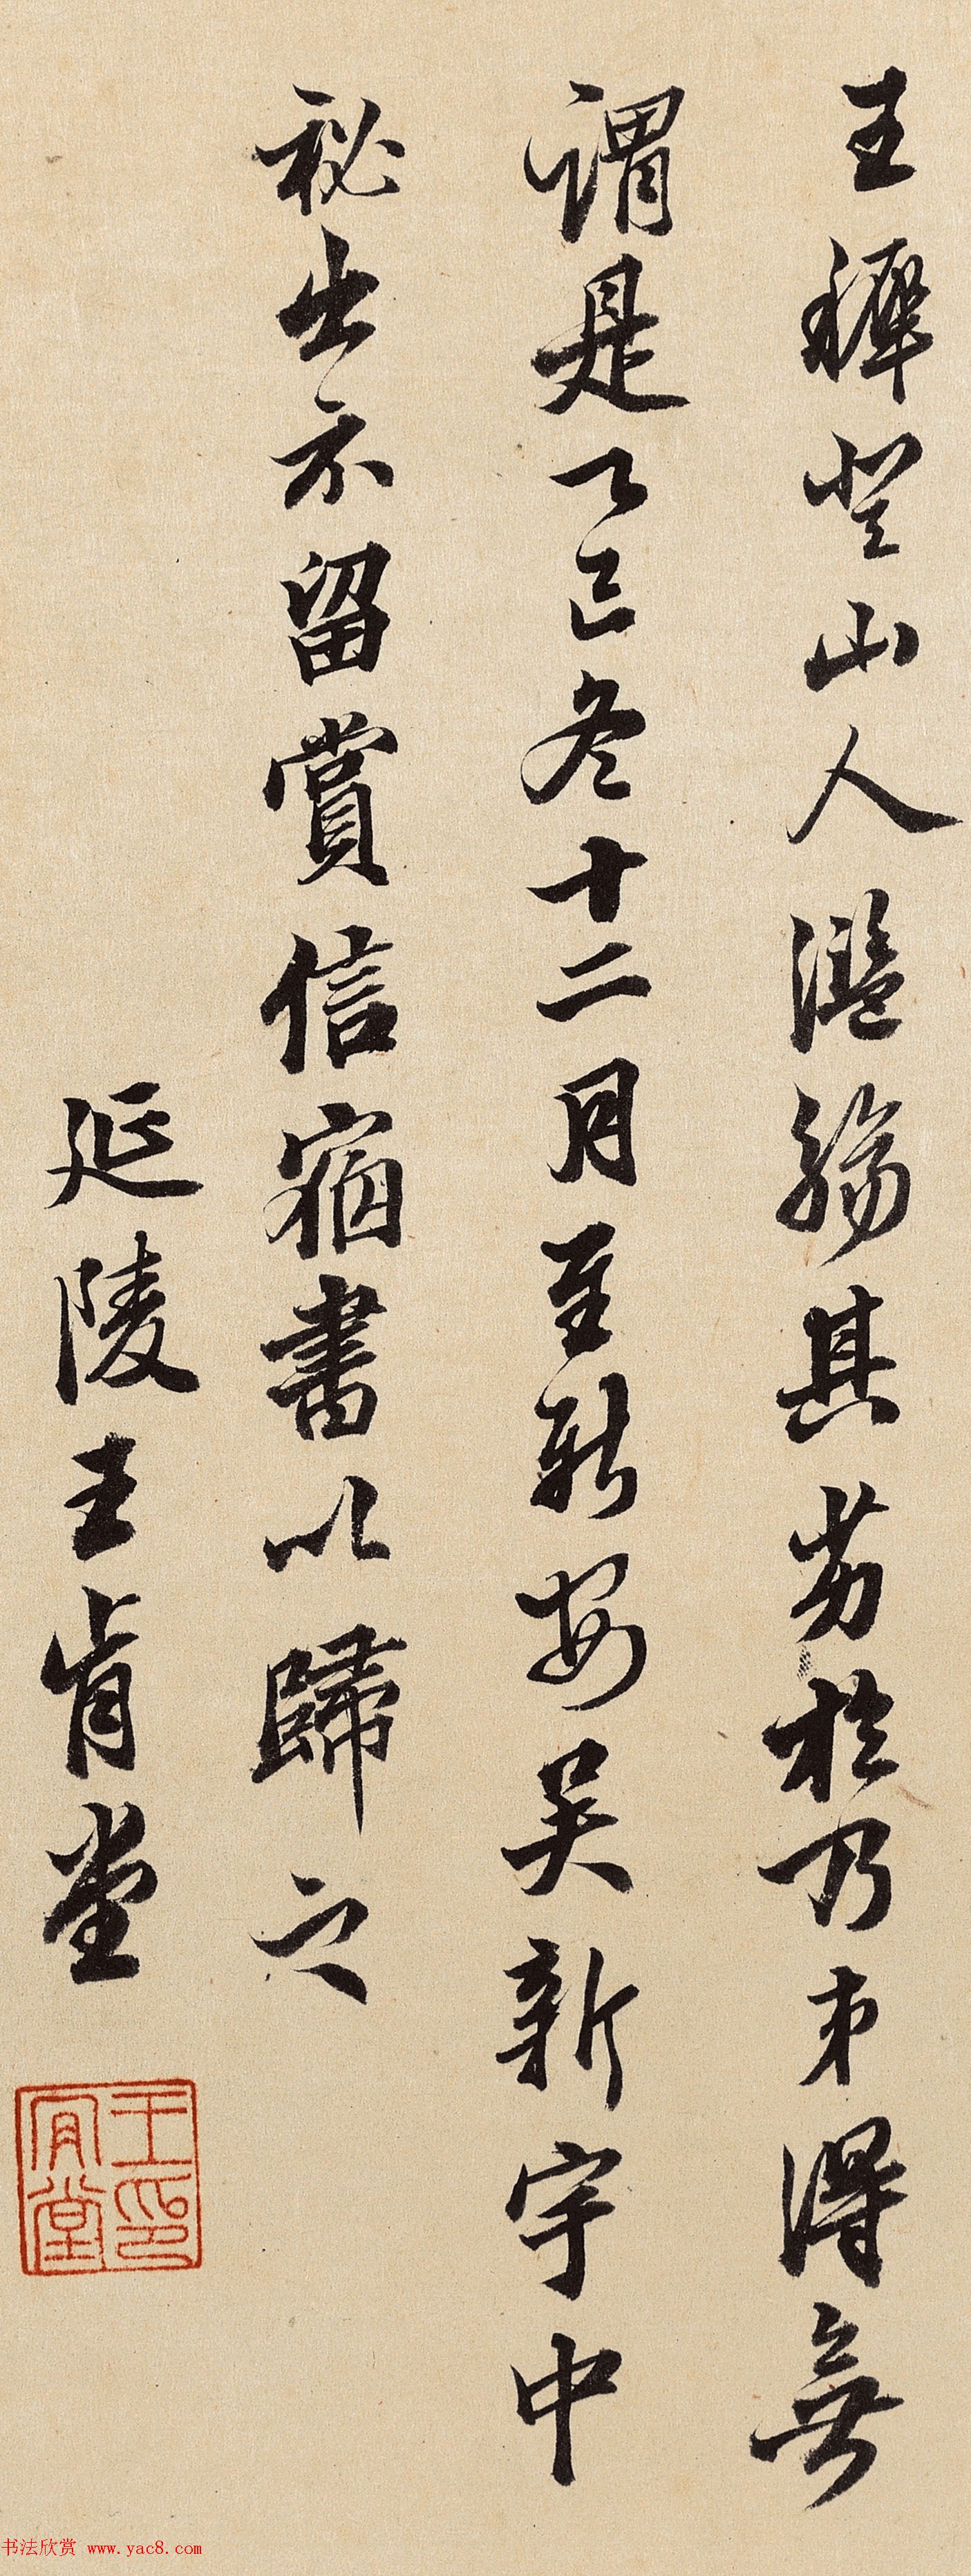 王穉登山人濫觴其首於乃弟得無
謂是乙巳冬十二月至新安吳新宇中
秘出示留賞信宿書以歸之
延陵王肯堂
王肯堂印
书法欣赏 www.yac8.com